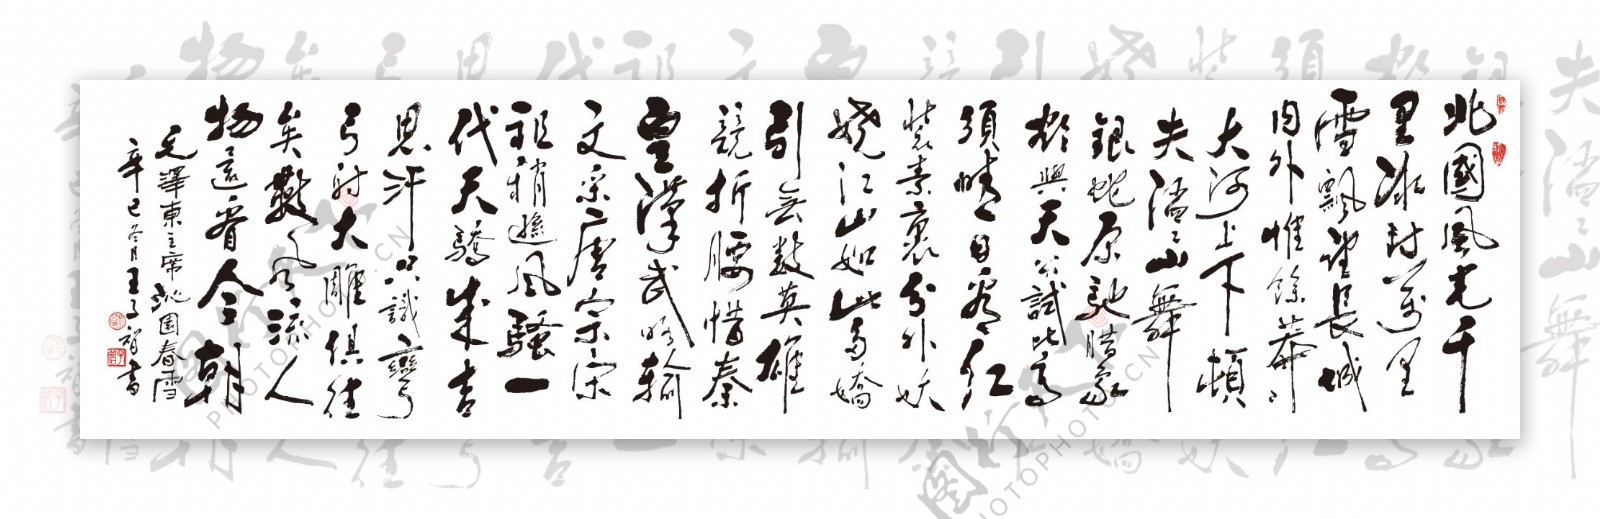 北國風光千
里冰封萬里
雪飄望長城
内外惟餘莽々
大河上下頓
失滔々山舞
銀蛇原馳臘象
欲與天公試比高
須晴日看紅
裝素裹分外妖
嬈江山如此多嬌
引無數英雄
競折腰惜秦
皇漢武略輸
文采唐宗宋
祖稍遜風騷一
代天驕成吉
思汗只識彎
弓射大雕俱往
矣數風流人
物還看今朝
毛澤東主席沁园春雪
辛巳冬月王子書
PHOTOPHOTO.CN